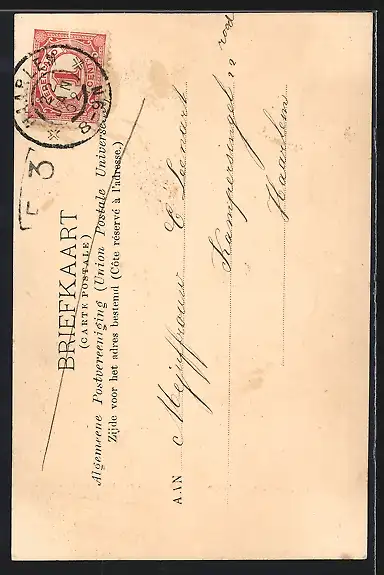 BRIEFKAART
(CARTE POSTALE)
Algemeene Postvereeniging (Union Postale Universelle)
Zijde voor het adres bestemd (Côte réservé à l'adresse.)
AAN Mejuffrouw C Leenart
Kampersingel 22 rood
Haarlem
HAARLEM
NEDERLAND
1
3